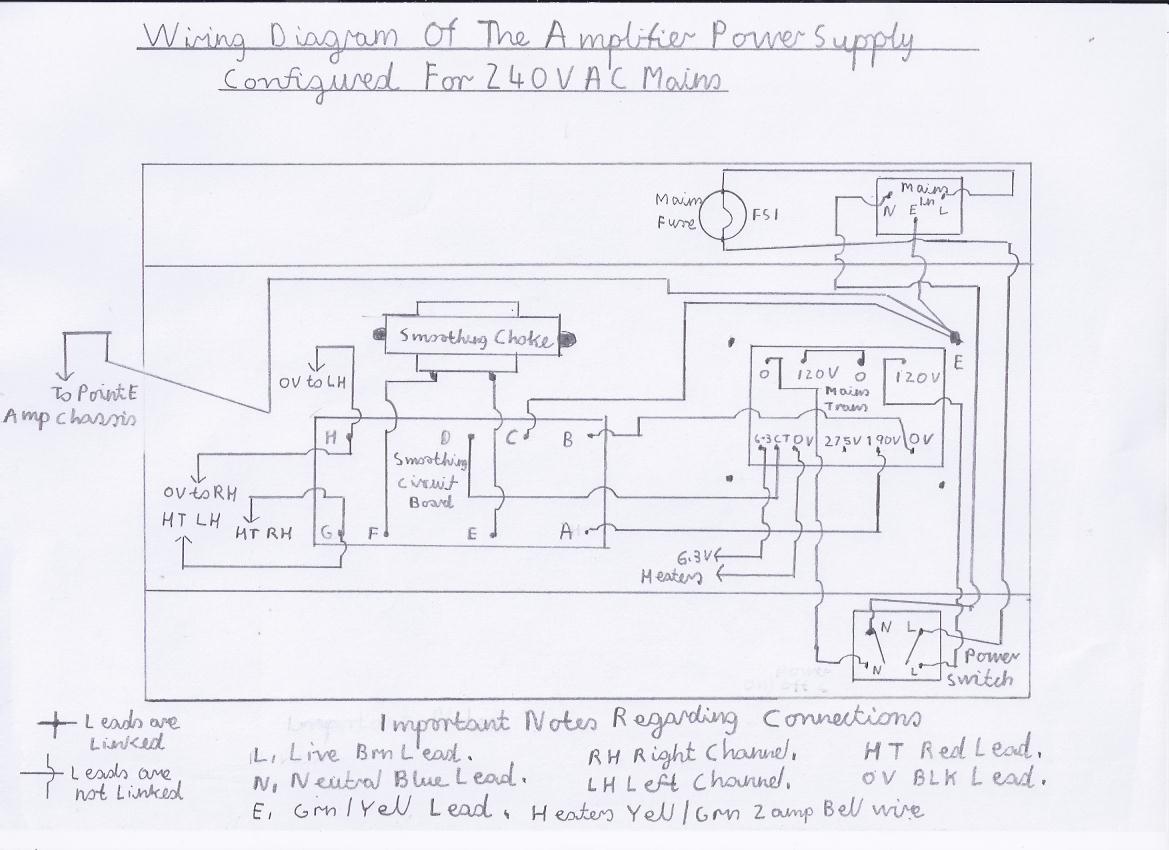 Wiring Diagram Of The Amplifier Power Supply
Configured For 240V AC Mains
Mains
Fuse
FS1
Mains
In
N E L
Smoothing Choke
0V to LH
To Point E
Amp Chassis
E
0 120V 0 120V
Mains
Trans
6-3 CT 0V 275V 190V 0V
H D C B
Smoothing
Circuit
Board
0V to RH
HT LH
HT RH
G F E A
6.3V
Heaters
N L
N L
Power
Switch
Leads are
Linked
Leads are
not Linked
Important Notes Regarding Connections
L, Live Brn Lead. RH Right Channel, HT Red Lead.
N, Neutral Blue Lead. LH Left Channel, 0V BLK Lead.
E, Grn/Yell Lead, Heaters Yell/Grn 2 amp Bel wire